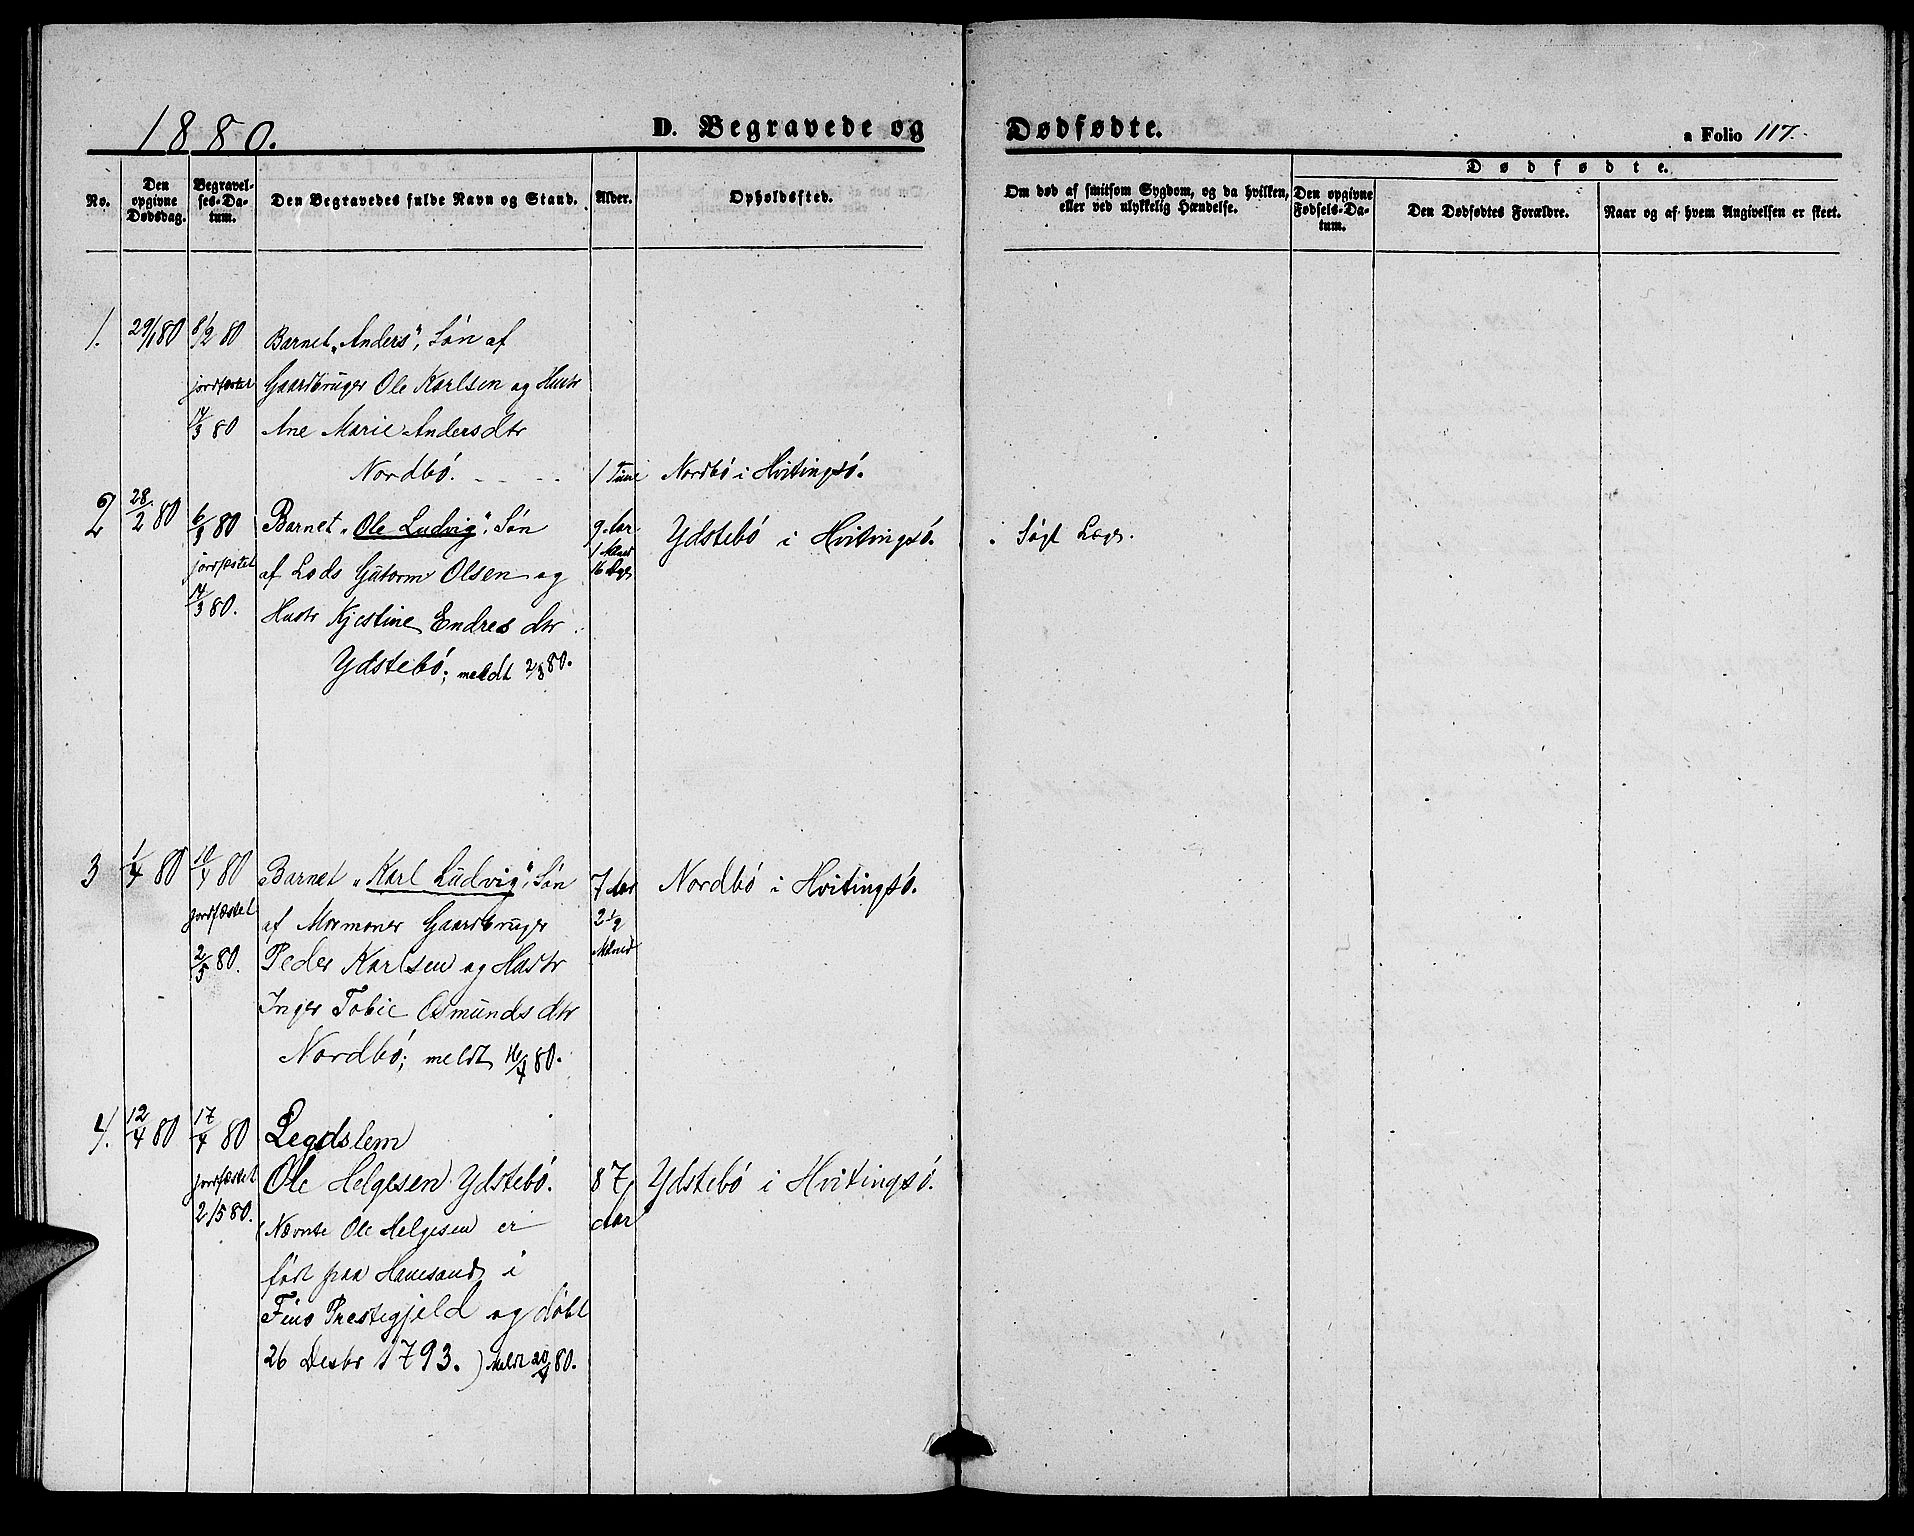 1880.
D. Begravede og Dødfødte.
a Folio 117.
No.
Den opgivne Dødsdag.
Begravelses-Datum.
Den Begravedes fulde Navn og Stand.
Alder.
Opholdssted.
Om død af smitsom Sygdom, og da hvilken, eller ved ulykkelig Hændelse.
Dødfødte.
Den opgivne Fødsels-Datum.
Den Dødfødtes Forældre.
Naar og af hvem Angivelsen er skeet.
1. 29/1 80 8/2 80 Barnet „Anders", Søn af
jordfæstet Gaardbruger Ole Karlsen og Hustr
17/3 80 Ane Marie Andersdtr
Nordbö. - - - - 1 Time Nordbö i Hvitingsö.
2 28/2 80 6/3 80 Barnet „Ole Ludvig", Søn 9 Aar Ydstebö i Hvitingsö. Søgt Læge.
jordfæstet af Lods Gutorm Olsen og 1 Maned 16 Dage
17/3 80. Hustr Kjestine Endresdtr
Ydstebö; meldt 2/3 80.
3 1/4 80 10/4 80 Barnet „Karl Ludvig", Søn 7 Aar Nordbö i Hvitingsö.
jordfæstet af Mormoner Gaardbruger 2 1/2
2/5 80. Peder Karlsen og Hustr Maned
Inger Tobie Osmundsdtr
Nordbö; meldt 16/4 80.
4. 12/4 80 17/4 80 Legdslem
jordfæstet Ole Helgesen Ydstebö. 87 Ydstebö i Hvitingsö.
2/5 80. (Nævnte Ole Helgesen er Aar
født paa Hanesand i
Finö Prestegjeld og døbt
26 Desbr 1793.) Meldt 20/4 80.